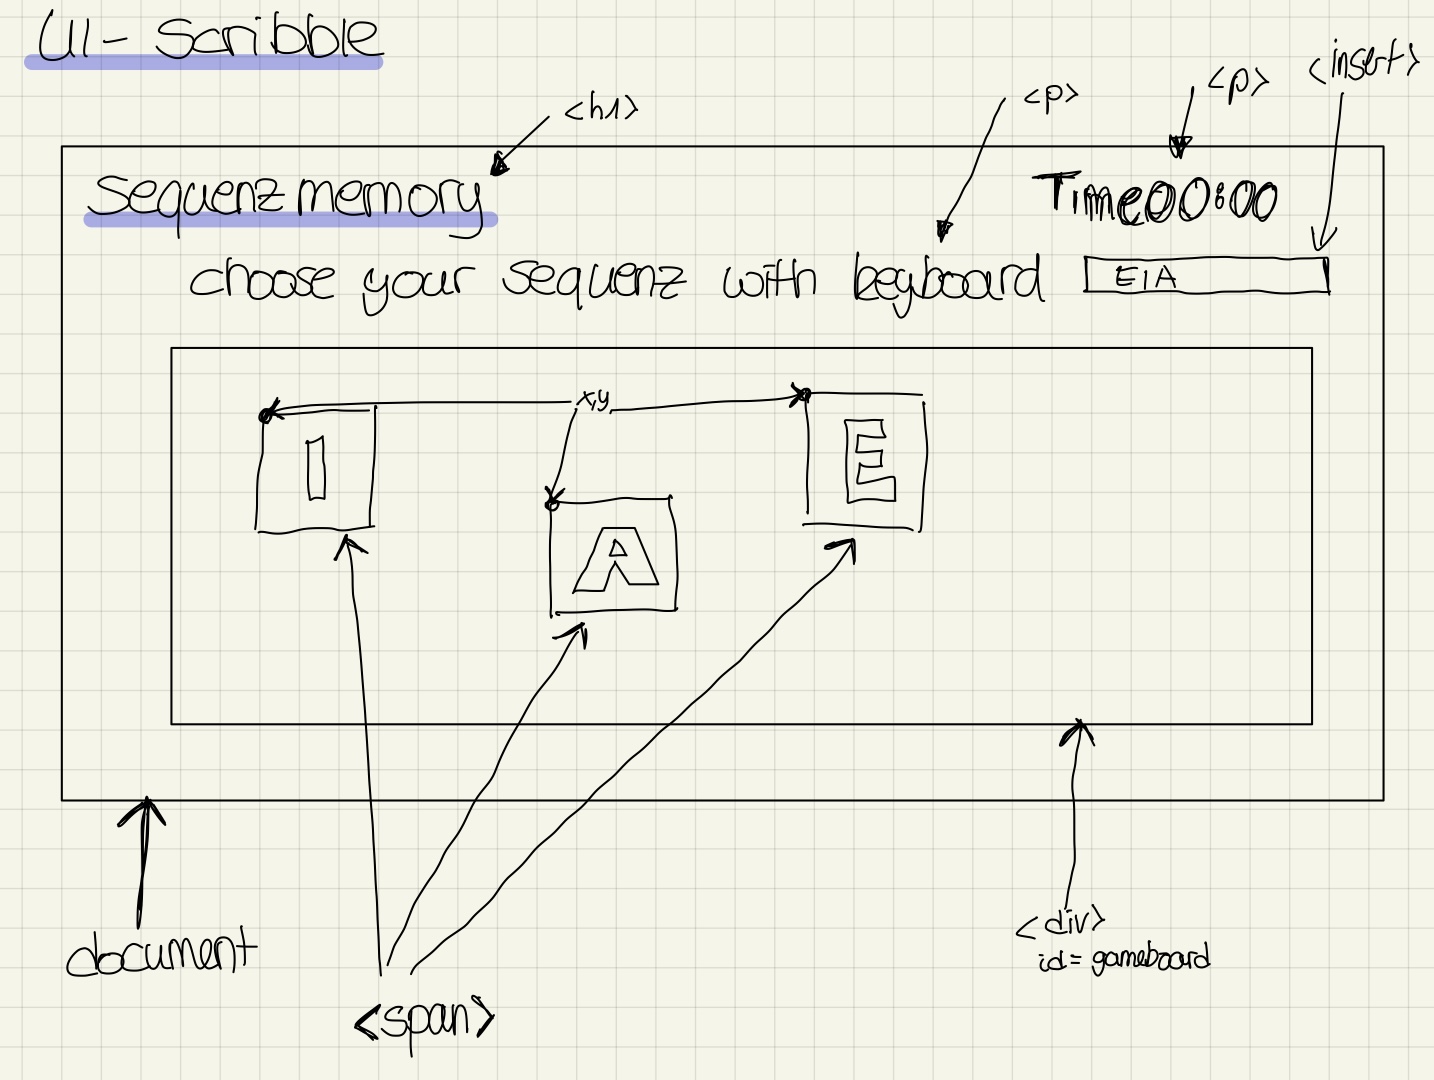 UI- Scribble
<h1>
<p>
<p>
<insert>
Sequenz memory
Time 00:00
choose your sequenz with keyboard
EIA
x,y
I
E
A
document
<div>
id= gameboard
<span>